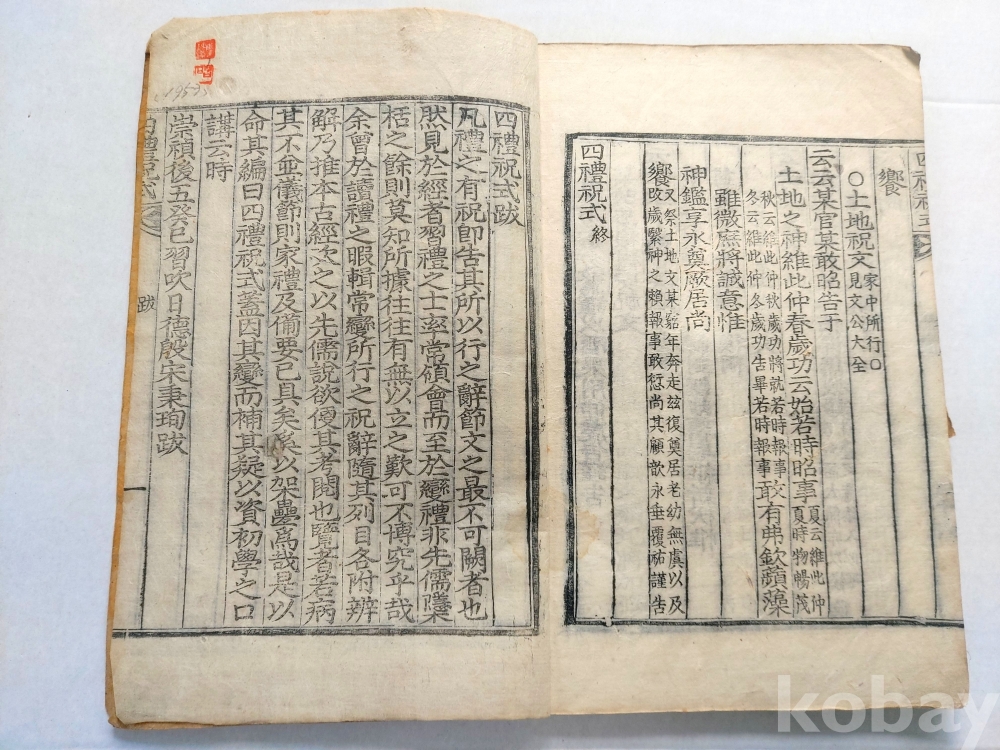 饗
○土地祝文 家中所行○見文公大全
云云某官某敢昭告于
土地之神維此仲春歲功云始若時昭事 夏云維此仲夏時物暢茂 敢有弗欽蘋藻
秋云維此仲秋歲功將就若時報事
冬云維此仲冬歲功告畢若時報事
雖微庶將誠意惟
神鑑享永奠厥居尚
饗 又祭土地文某谿年奔走玆復奠居老幼無虞以及改歲繄神之賴報事敢衍尚其顧歆永垂覆祐謹告
四禮祝式 終
四禮祝式跋
凡禮之有祝卽告其所以行之辭節文之最不可闕者也
然見於經者習禮之士率嘗領會而至於變禮非先儒隱
栝之餘則莫知所據往往有無以立之歎可不博究乎哉
余曾於讀禮之暇輯常變所行之祝辭隨其列目各附辨
解乃推本古經次之以先儒說欲便其考閱也覽者若病
其不並儀節則家禮及備要已具矣奚以架疊爲哉是以
命其編曰四禮祝式蓋因其變而補其疑以資初學之口
講云時
崇禎後五癸巳習吹日德殷宋秉珣跋
四禮祝式
跋
一
kobay